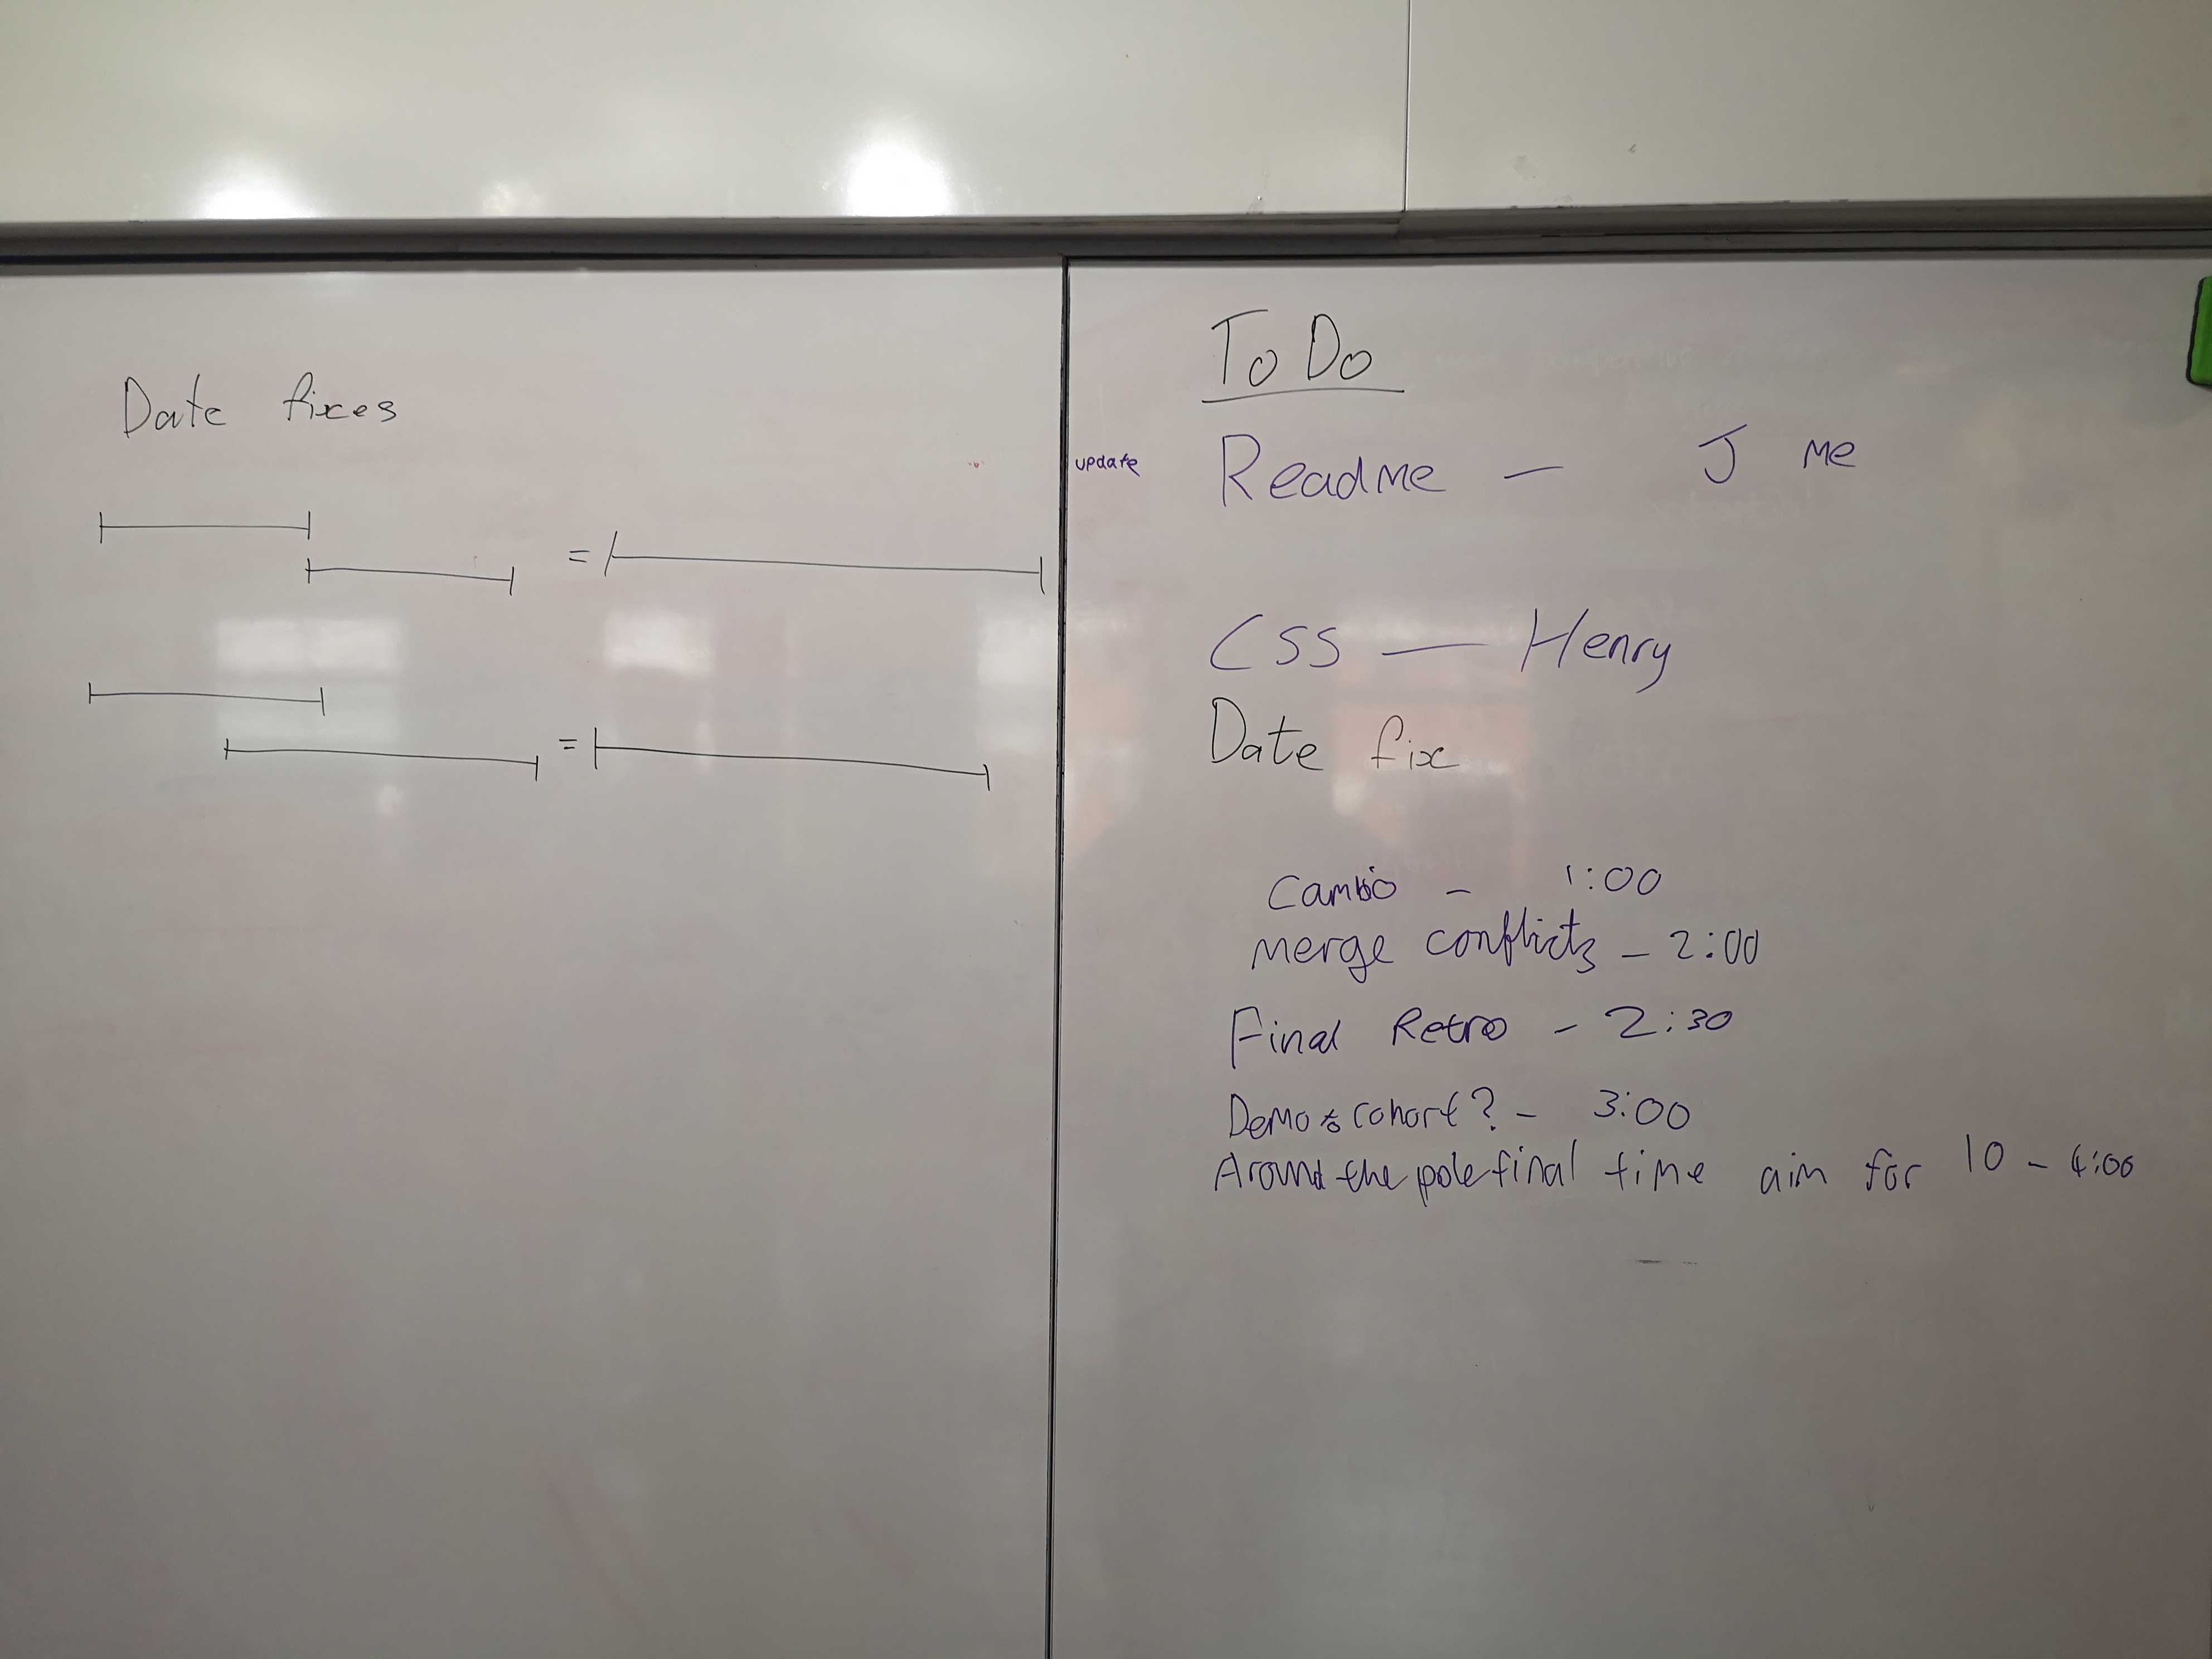 Date fixes
=
=
To Do
update Readme - J me
CSS - Henry
Date fix
Cambio - 1:00
merge conflicts - 2:00
Final Retro - 2:30
Demo to cohort? - 3:00
Around the pole final time aim for 10 - 4:00